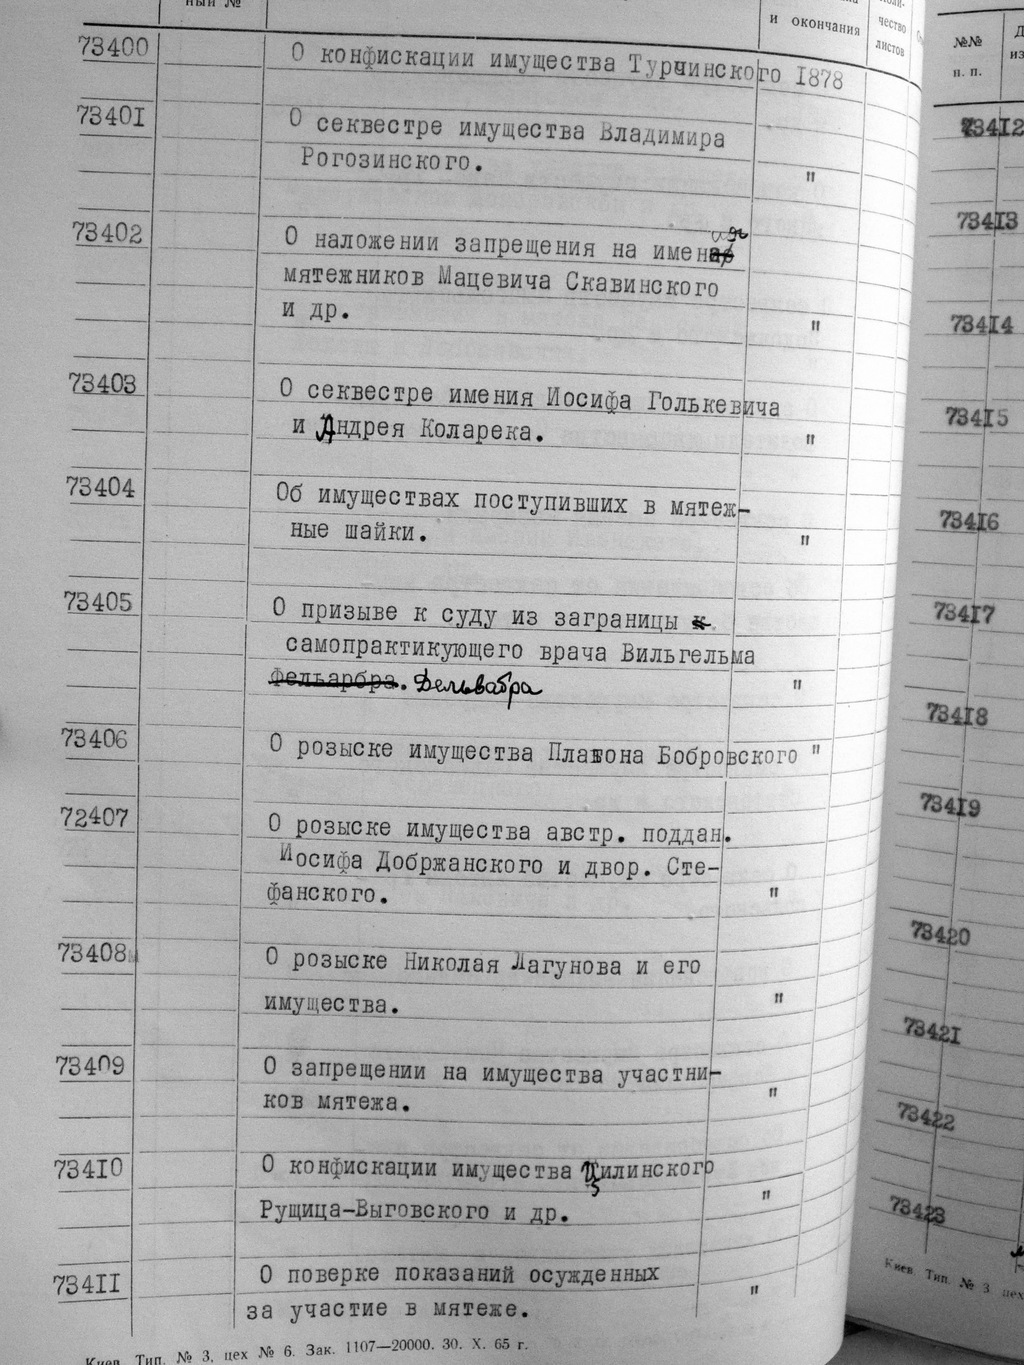 ный №
и окончания
чество
листов
73400 О конфискации имущества Турчинского 1878
73401 О секвестре имущества Владимира
Рогозинского. "
73402 О наложении запрещения на имения
мятежников Мацевича Скавинского
и др. "
73403 О секвестре имения Иосифа Голькевича
и Андрея Коларека. "
73404 Об имуществах поступивших в мятеж-
ные шайки. "
73405 О призыве к суду из заграницы
самопрактикующего врача Вильгельма
Фельарбра. Дельвабра "
73406 О розыске имущества Платона Бобровского "
72407 О розыске имущества австр. поддан.
Иосифа Добржанского и двор. Сте-
фанского. "
73408 О розыске Николая Лагунова и его
имущества. "
73409 О запрещении на имущества участни-
ков мятежа. "
73410 О конфискации имущества Цилинского
Рущица-Выговского и др. "
73411 О поверке показаний осужденных
за участие в мятеже. "
Киев. Тип. № 3, цех № 6. Зак. 1107—20000. 30. X. 65 г.
№№
п. п.
73412
73413
73414
73415
73416
73417
73418
73419
73420
73421
73422
73423
Киев. Тип. № 3 цех